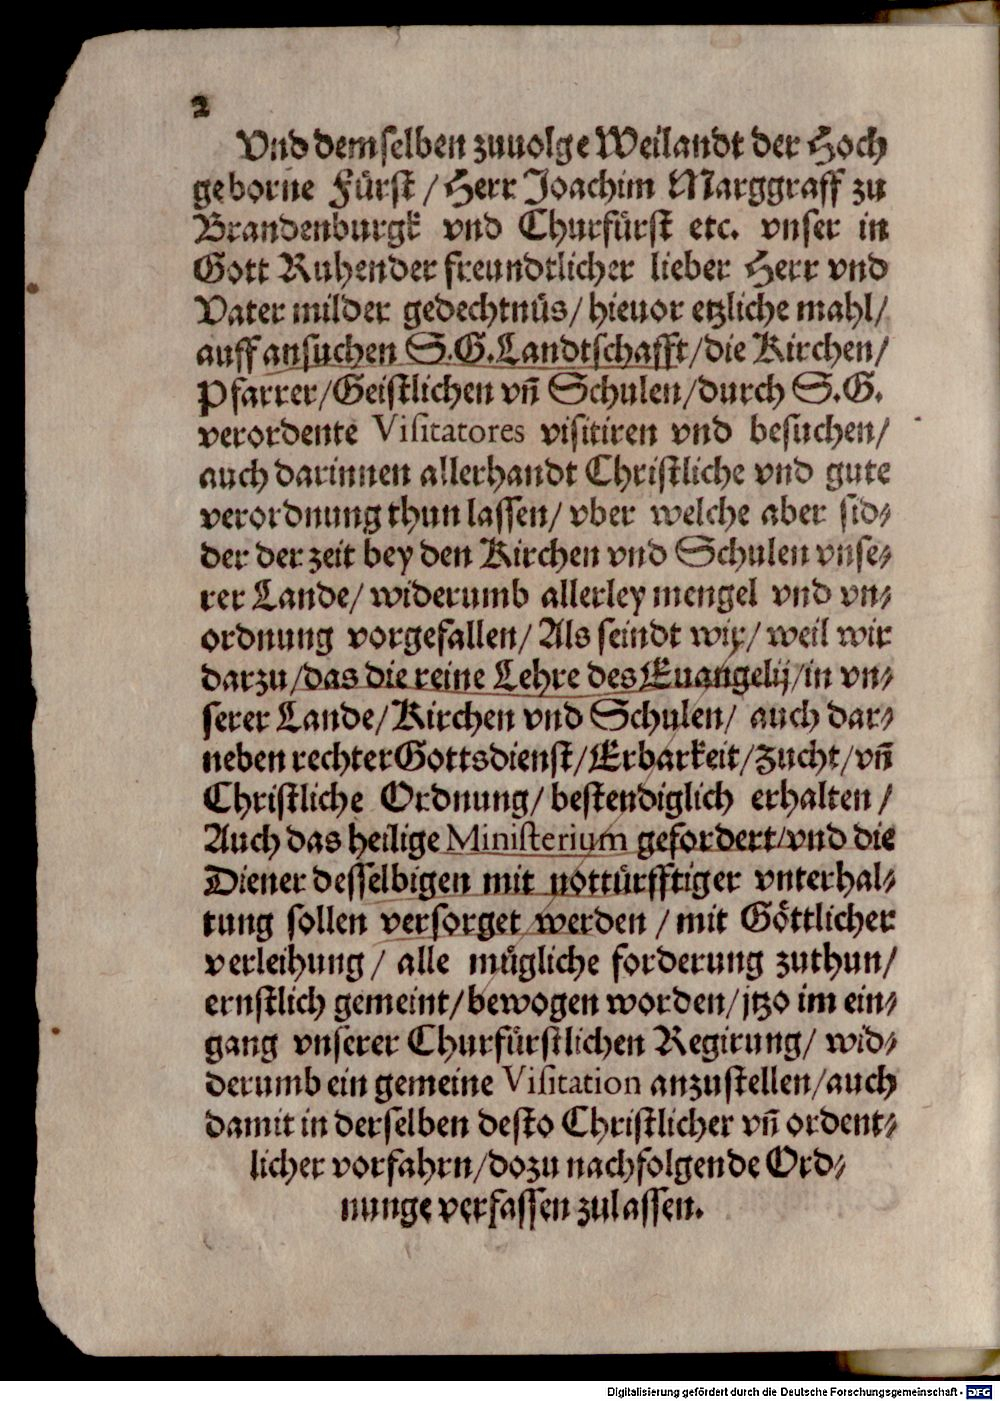 2
Vnd demselben zuuolge Weilandt der Hoch
geborne Fürst / Herr Joachim Marggraff zu
Brandenburgk vnd Churfürst etc. vnser in
Gott Ruhender freundtlicher lieber Herr vnd
Vater milder gedechtnüs/ hieuor etzliche mahl/
auff ansuchen S.G.Landtschafft/die Kirchen/
Pfarrer/Geistlichen vñ Schulen/durch S.G.
verordente Visitatores visitiren vnd besuchen/
auch darinnen allerhandt Christliche vnd gute
verordnung thun lassen/ vber welche aber sid⸗
der der zeit bey den Kirchen vnd Schulen vnse⸗
rer Lande/ widerumb allerley mengel vnd vn⸗
ordnung vorgefallen/ Als seindt wir/ weil wir
darzu/das die reine Lehre des Euangelij/in vn⸗
serer Lande/ Kirchen vnd Schulen/ auch dar⸗
neben rechter Gottsdienst/Erbarkeit/Zucht/vñ
Christliche Ordnung/ bestendiglich erhalten /
Auch das heilige Ministerium gefordert/vnd die
Diener desselbigen mit nottürfftiger vnterhal⸗
tung sollen versorget werden / mit Göttlicher
verleihung / alle mügliche forderung zuthun/
ernstlich gemeint/bewogen worden/jtzo im ein⸗
gang vnserer Churfürstlichen Regirung/ wid⸗
derumb ein gemeine Visitation anzustellen/auch
damit in derselben desto Christlicher vñ ordent⸗
licher vorfahrn/dozu nachfolgende Ord⸗
nunge verfassen zulassen.
Digitalisierung gefördert durch die Deutsche Forschungsgemeinschaft - DFG